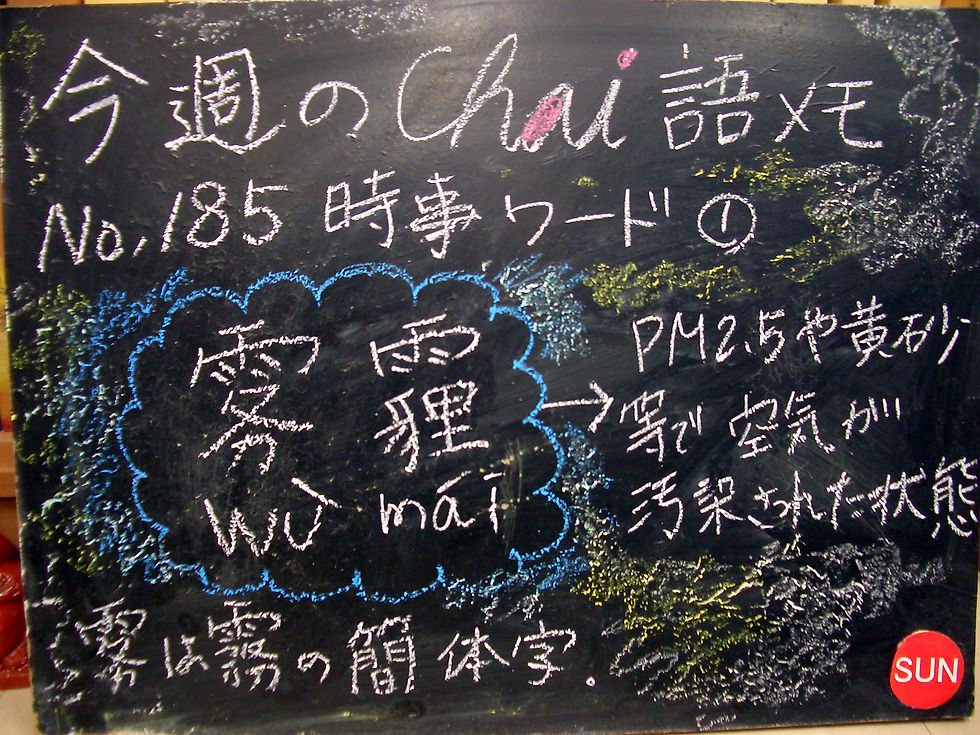 今週のChai語メモ
No.185 時事ワード①
雾霾
wù mái
→PM2.5や黄砂
等で空気が
汚染された状態
雾は霧の簡体字.
SUN